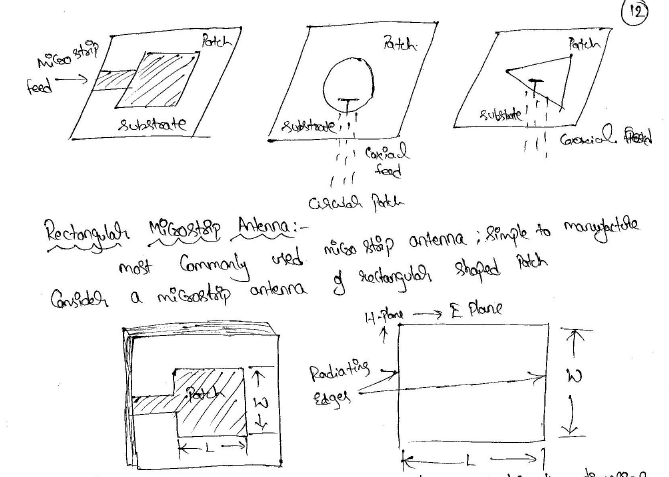 12
Microstrip
feed
Patch
Substrate
Patch
Substrate
Coaxial
feed
Circular Patch
Patch
Substrate
Coaxial feed
Rectangular Microstrip Antenna:-
most Commonly used micro strip antenna ; Simple to manufacture
Consider a microstrip antenna of rectangular shaped Patch
Patch
W
L
H-Plane → E Plane
Radiating
Edges
W
L